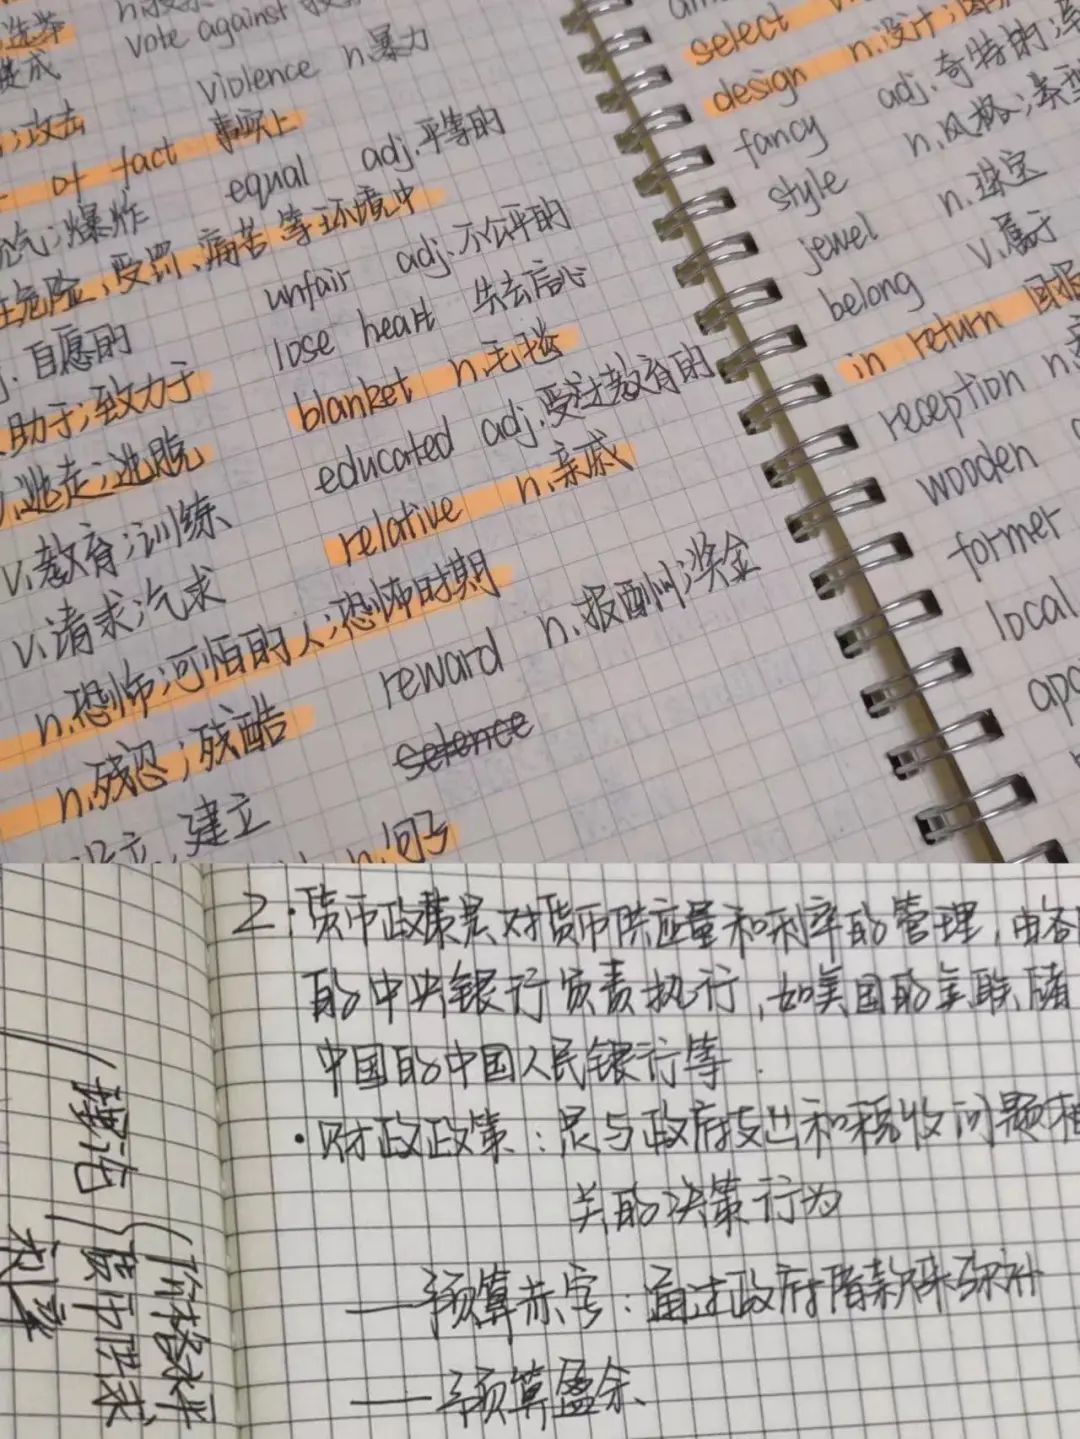 选举
vote against
violence n.暴力
;攻击
of fact 事实上
equal adj.平等的
;爆炸
危险、受罚、痛苦等环境中
unfair adj.不公平的
自愿的
lose heart 失去信心
助于;致力于
blanket n.毛毯
逃走;逃脱
educated adj.受过教育的
v.教育;训练
relative n.亲戚
v.请求;乞求
n.恐怖;可怕的人;恐怖时期
reward n.报酬;奖金
n.残忍;残酷
建立
select
design n.设计;
fancy adj.奇特的;
style n.风格;类型
jewel n.珠宝
belong v.属于
in return
reception n.
wooden
former
local
2.货币政策是对货币供应量和利率的管理,由各
的中央银行负责执行,如美国的美联储
中国的中国人民银行等.
·财政政策:是与政府支出和税收问题相
关的决策行为
—预算赤字:通过政府借款来弥补
—预算盈余
价格水平
货币供求
利率